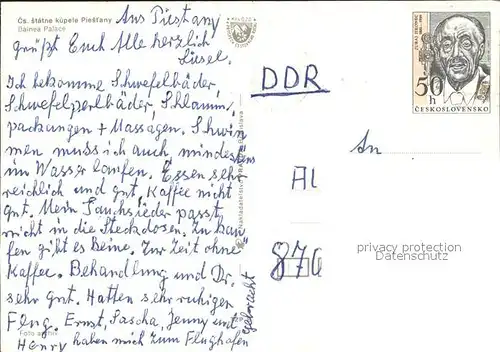 Čs. štátne kúpele Piešťany
Balnea Palace
Aus Piestany
grüßt Euch Alle herzlich
Liesel.
Ich bekomme Schwefelbäder,
Schwefelperlbäder, Schlamm,
packungen + Massagen. Schwim
men muss ich auch mindestens
im Wasser laufen. Essen sehr
reichlich und gut, Kaffee nicht
gut. Mein Tauchsieder passt
nicht in die Steckdosen. Zu kau-
fen gibt es keine. Zur Zeit ohne
Kaffee. Behandlung und Dr.
sehr gut. Hatten sehr ruhigen
Flug. Ernst, Sascha, Jenny und
Henry haben mich zum Flughafen
gebracht
Foto
DDR
An
A1
876
50
h
ČESKOSLOVENSKO
privacy protection
Datenschutz